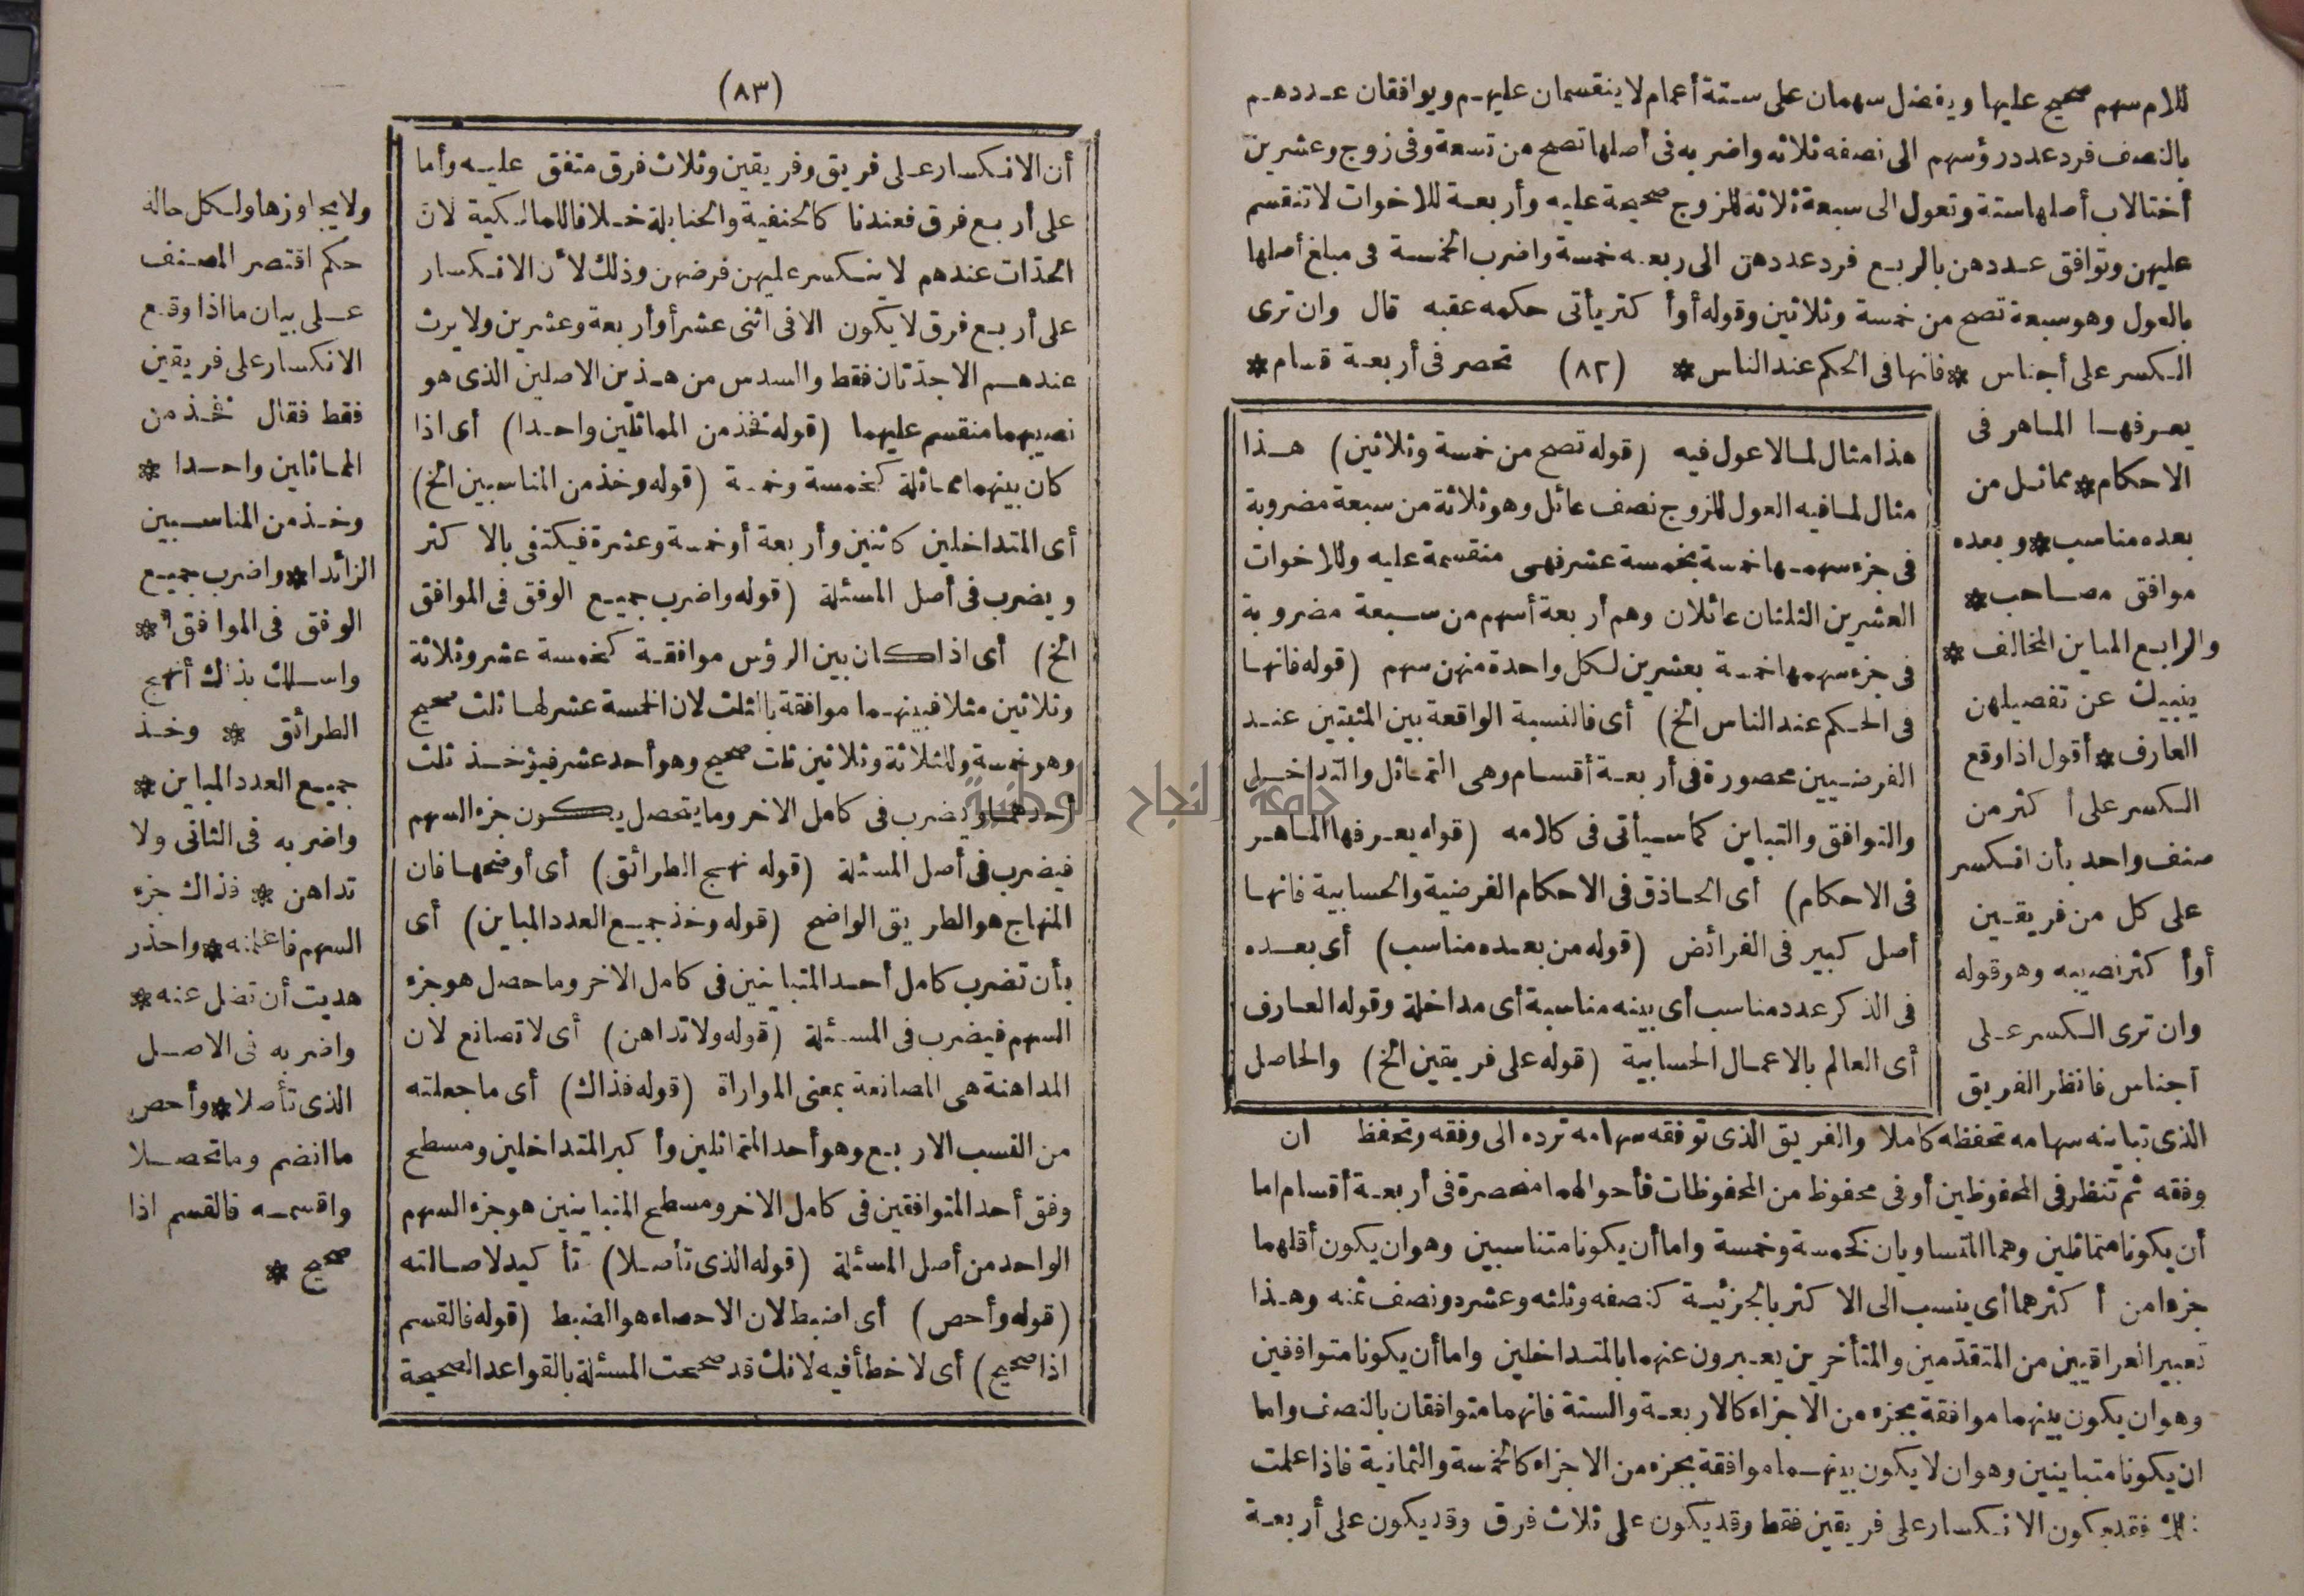 للام سهم صحيح عليها ويفضل سهمان على ستة أعمام لا ينقسمان عليهم ويوافقان عددهم
بالنصف فرد عدد رؤسهم الى نصفه ثلاثه واضربه فى أصلها تصح من تسعة وفى زوج وعشرين
أختا لاب أصلها ستة وتعول الى سبعة ثلاثة للزوج صحيحة عليه وأربعة للاخوات لا تنقسم
عليهن وتوافق عددهن بالربع فرد عددهن الى ربعه خمسة واضرب الخمسة فى مبلغ أصلها
بالعول وهو سبعة تصح من خمسة وثلاثين وقوله أوأ كثر يأتى حكمه عقبه قال وان ترى
الكسر على أجناس * فانها فى الحكم عند الناس * (٨٢) تحصر فى أربعة قسام *
يعرفها الماهر فى
الاحكام * مماثل من
بعده مناسب * وبعده
موافق مصاحب *
والرابع المباين المخالف *
ينبيك عن تفصيلهن
العارف * أقول اذا وقع
الكسر على أ كثر من
صنف واحد بأن انكسر
على كل من فريقين
أوأ كثر نصيبه وهو قوله
وان ترى الكسر على
أجناس فانظر الفريق
هذا مثال لما لا عول فيه (قوله تصح من خمسة وثلاثين) هذا
مثال لما فيه العول للزوج نصف عائل وهو ثلاثة من سبعة مضروبة
فى جزء سهمها خمسة بخمسة عشر فهى منقسمة عليه وللاخوات
العشرين الثلثان عائلان وهم أربعة أسهم من سبعة مضروبة
فى جزء سهمها خمسة بعشرين لكل واحدة منهن سهم (قوله فانها
فى الحكم عند الناس الخ) أى فالنسبة الواقعة بين المثبتين عند
الفرضيين محصورة فى أربعة أقسام وهى التماثل والتداخل
والتوافق والتباين كما سيأتى فى كلامه (قوله يعرفها الماهر
فى الاحكام) أى الحاذق فى الاحكام الفرضية والحسابية فانها
أصل كبير فى الفرائض (قوله من بعده مناسب) أى بعده
فى الذكر عدد مناسب أى بينه مناسبة أى مداخلة وقوله العارف
أى العالم بالاعمال الحسابية (قوله على فريقين الخ) والحاصل
الذى تباينه سهامه تحفظه كاملا والفريق الذى توفقه سهامه ترده الى وفقه وتحفظ ان
وفقه ثم تنظر فى المحفوظين أو فى محفوظ من المحفوظات فأحوالهما منحصرة فى أربعة أقسام اما
أن يكونا متماثلين وهما المتساويان كخمسة وخمسة واما أن يكونا متناسبين وهو ان يكون أقلهما
جزءا من أ كثرهما أى ينسب الى الا كثر بالجزئية كنصفه وثلثه وعشره ونصف ثمنه وهذا
تعبير العراقيين من المتقدمين والمتأخرين يعبرون عنهما بالمتداخلين واما أن يكونا متوافقين
وهو ان يكون بينهما موافقة بجزء من الاجزاء كالاربعة والستة فانهما متوافقان بالنصف واما
ان يكونا متباينين وهو ان لا يكون بينهما موافقة بجزء من الاجزاء كالخمسة والثمانية فاذا علمت
ذلك فقد يكون الانكسار على فريقين فقط وقد يكون على ثلاث فرق وقد يكون على أربعة
(٨٣)
أن الانكسار على فريق وفريقين وثلاث فرق متفق عليه وأما
على أربع فرق فعندنا كالحنفية والحنابلة خلافا للمالكية لان
الجدات عندهم لا ينكسر عليهن فرضهن وذلك لأن الانكسار
على أربع فرق لا يكون الا فى اثنى عشر أو أربعة وعشرين ولا يرث
عندهم الا جدتان فقط والسدس من هذين الاصلين الذى هو
نصيبهما منقسم عليهما (قوله فخذ من المماثلين واحدا) أى اذا
كان بينهما مماثلة كخمسة وخمسة (قوله وخذ من المناسبين الخ)
أى المتداخلين كاثنين وأربعة أو خمسة وعشرة فيكتفى بالا كثر
ويضرب فى أصل المسئلة (قوله واضرب جميع الوفق فى الموافق
الخ) أى اذا كان بين الرؤس موافقة كخمسة عشر وثلاثة
وثلاثين مثلا فبينهما موافقة بالثلث لان الخمسة عشر لها ثلث صحيح
وهو خمسة وللثلاثة وثلاثين ثلث صحيح وهو أحد عشر فيؤخذ ثلث
أحدهما ويضرب فى كامل الاخر وما يتحصل يكون جزء السهم
فيضرب فى أصل المسئلة (قوله نهج الطرائق) أى أوضحها فان
المنهاج هو الطريق الواضح (قوله وخذ جميع العدد المباين) أى
بأن تضرب كامل أحد المتباينين فى كامل الاخر وما حصل هو جزء
السهم فيضرب فى المسئلة (قوله ولا تداهن) أى لا تصانع لان
المداهنة هى المصانعة بمعنى المواراة (قوله فذاك) أى ما جعلته
من النسب الاربع وهو أحد المتماثلين وأ كبر المتداخلين ومسطح
وفق أحد المتوافقين فى كامل الاخر ومسطح المتباينين هو جزء السهم
الواحد من أصل المسئلة (قوله الذى تأصلا) تأ كيد لاصالته
(قوله وأحص) أى اضبط لان الاحصاء هو الضبط (قوله فالقسم
اذا صحيح) أى لا خطأ فيه لانك قد صححت المسئلة بالقواعد الصحيحة
ولا يجاوزها ولكل حالة
حكم اقتصر المصنف
على بيان ما اذا وقع
الانكسار على فريقين
فقط فقال فخذ من
المماثلين واحدا *
وخذ من المناسبين
الزائدا * واضرب جميع
الوفق فى الموافق *
واسلك بذاك أنهج
الطرائق * وخذ
جميع العدد المباين *
واضربه فى الثانى ولا
تداهن * فذاك جزء
السهم فاعلمنه * واحذر
هديت أن تضل عنه *
واضربه فى الاصل
الذى تأصلا * وأحص
ما انضم وما تحصلا
واقسمه فالقسم اذا
صحيح *
جامعة النجاح الوطنية